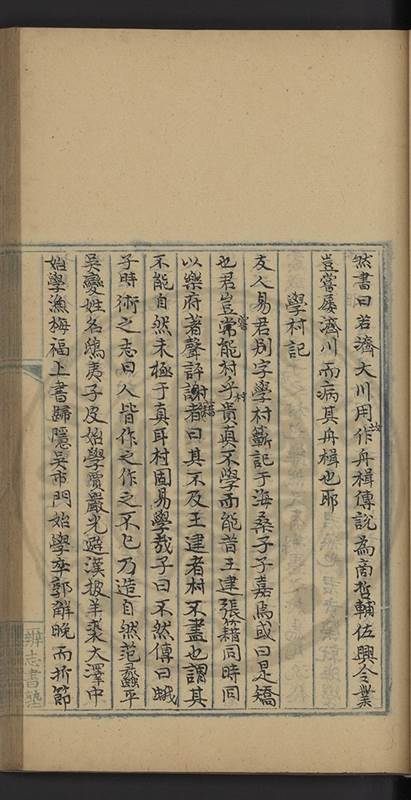 然書曰若濟大川用作舟楫傳說為商哲輔佐興令業
豈嘗屢濟川而病其舟楫也耶
學村記
友人易君別字學村蘄記于海桑子子嘉焉或曰是矯
也君豈嘗能村乎村貴真不學而能昔王建張籍同時同
以樂府著聲評者謂籍曰其不及王建者村不盡也謂其
不能自然未極于真耳村固易學哉子曰不然傳曰蛾
子時術之志曰人皆作之作之不已乃造自然范蠡平
吳變姓名鴟夷子皮始學賈嚴光避漢披羊裘大澤中
始學漁梅福上書歸隱吳市門始學卒郭解晚而折節
辨志書塾